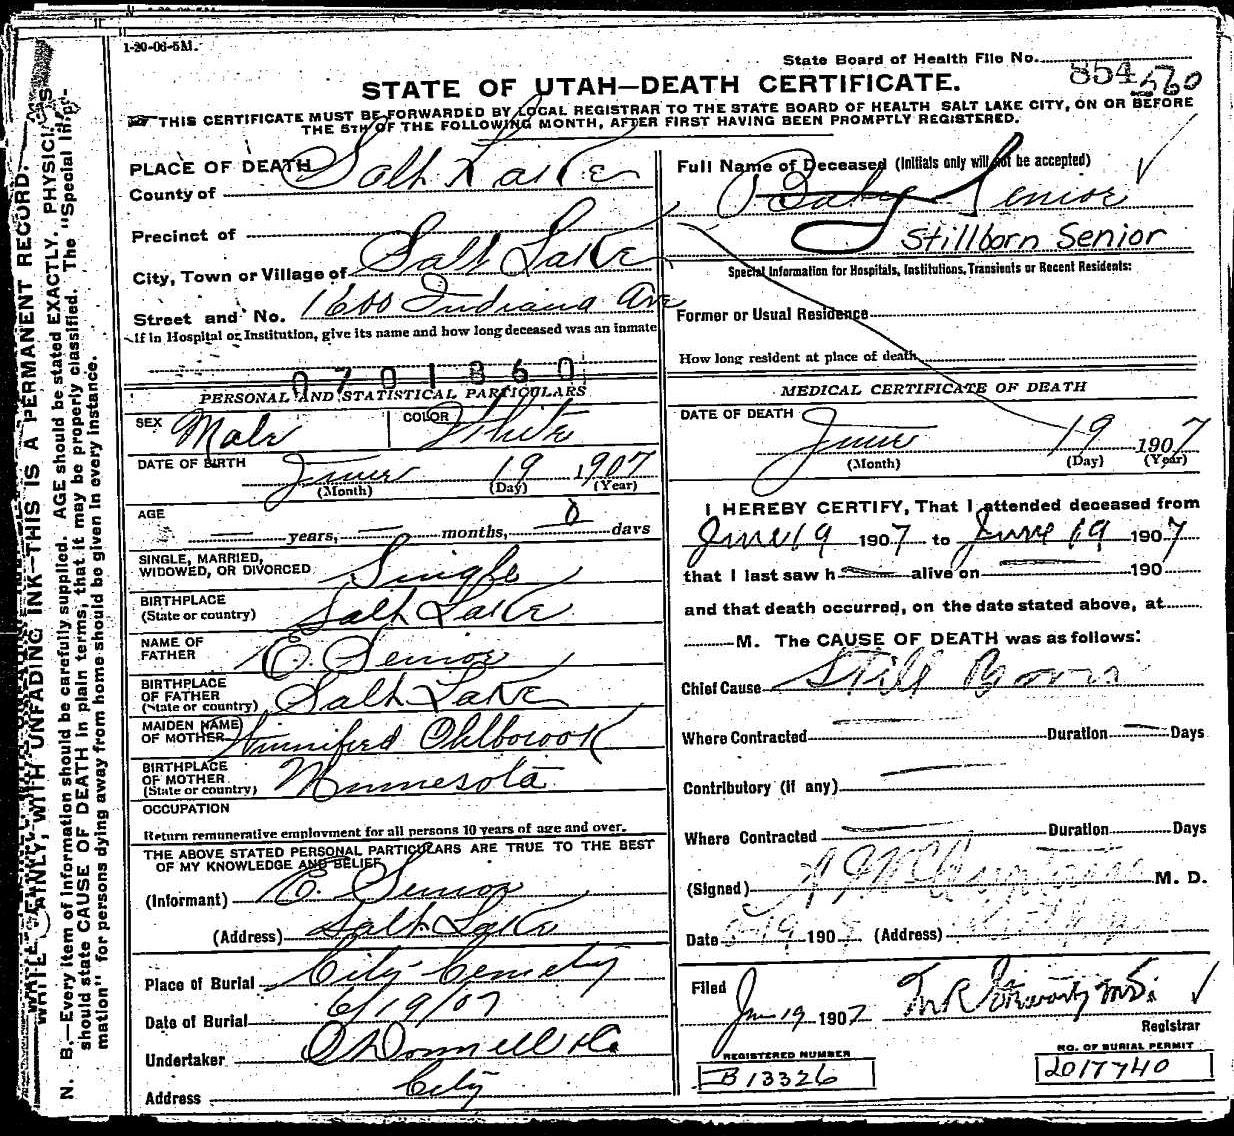 1-20-06-5M.
State Board of Health File No. 854 560
STATE OF UTAH—DEATH CERTIFICATE.
THIS CERTIFICATE MUST BE FORWARDED BY LOCAL REGISTRAR TO THE STATE BOARD OF HEALTH SALT LAKE CITY, ON OR BEFORE
THE 5TH OF THE FOLLOWING MONTH, AFTER FIRST HAVING BEEN PROMPTLY REGISTERED.
PLACE OF DEATH
County of Salt Lake
Precinct of
City, Town or Village of Salt Lake
Street and No. 1600 Indiana Ave
If in Hospital or Institution, give its name and how long deceased was an inmate
0701860
PERSONAL AND STATISTICAL PARTICULARS
SEX Male COLOR White
DATE OF BIRTH June 19 1907
(Month) (Day) (Year)
AGE
years, months, 0 days
SINGLE, MARRIED,
WIDOWED, OR DIVORCED Single
BIRTHPLACE
(State or country) Salt Lake
NAME OF
FATHER E. Senior
BIRTHPLACE
OF FATHER
(State or country) Salt Lake
MAIDEN NAME
OF MOTHER Winnifred
BIRTHPLACE
OF MOTHER
(State or country) Minnesota
OCCUPATION
Return remunerative employment for all persons 10 years of age and over.
THE ABOVE STATED PERSONAL PARTICULARS ARE TRUE TO THE BEST
OF MY KNOWLEDGE AND BELIEF
(Informant) E. Senior
(Address) Salt Lake
Place of Burial City Cemetery
Date of Burial 6/19/07
Undertaker O'Donnell & Co
Address City
Full Name of Deceased (Initials only will not be accepted)
Baby Senior
Stillborn Senior
Special Information for Hospitals, Institutions, Transients or Recent Residents:
Former or Usual Residence
How long resident at place of death
MEDICAL CERTIFICATE OF DEATH
DATE OF DEATH June 19 1907
(Month) (Day) (Year)
I HEREBY CERTIFY, That I attended deceased from
June 19 1907 to June 19 1907
that I last saw h alive on 190
and that death occurred, on the date stated above, at
M. The CAUSE OF DEATH was as follows:
Chief Cause Still Born
Where Contracted Duration Days
Contributory (if any)
Where Contracted Duration Days
(Signed) M. D.
Date 6-19 190 (Address)
Filed
Jun 19 1907
Registrar
REGISTERED NUMBER
B 13326
NO. OF BURIAL PERMIT
2017740
WRITE PLAINLY, WITH UNFADING INK—THIS IS A PERMANENT RECORD.
N. B.—Every item of information should be carefully supplied. AGE should be stated EXACTLY. PHYSICIANS
should state CAUSE OF DEATH in plain terms, that it may be properly classified. The "Special Infor-
mation" for persons dying away from home should be given in every instance.